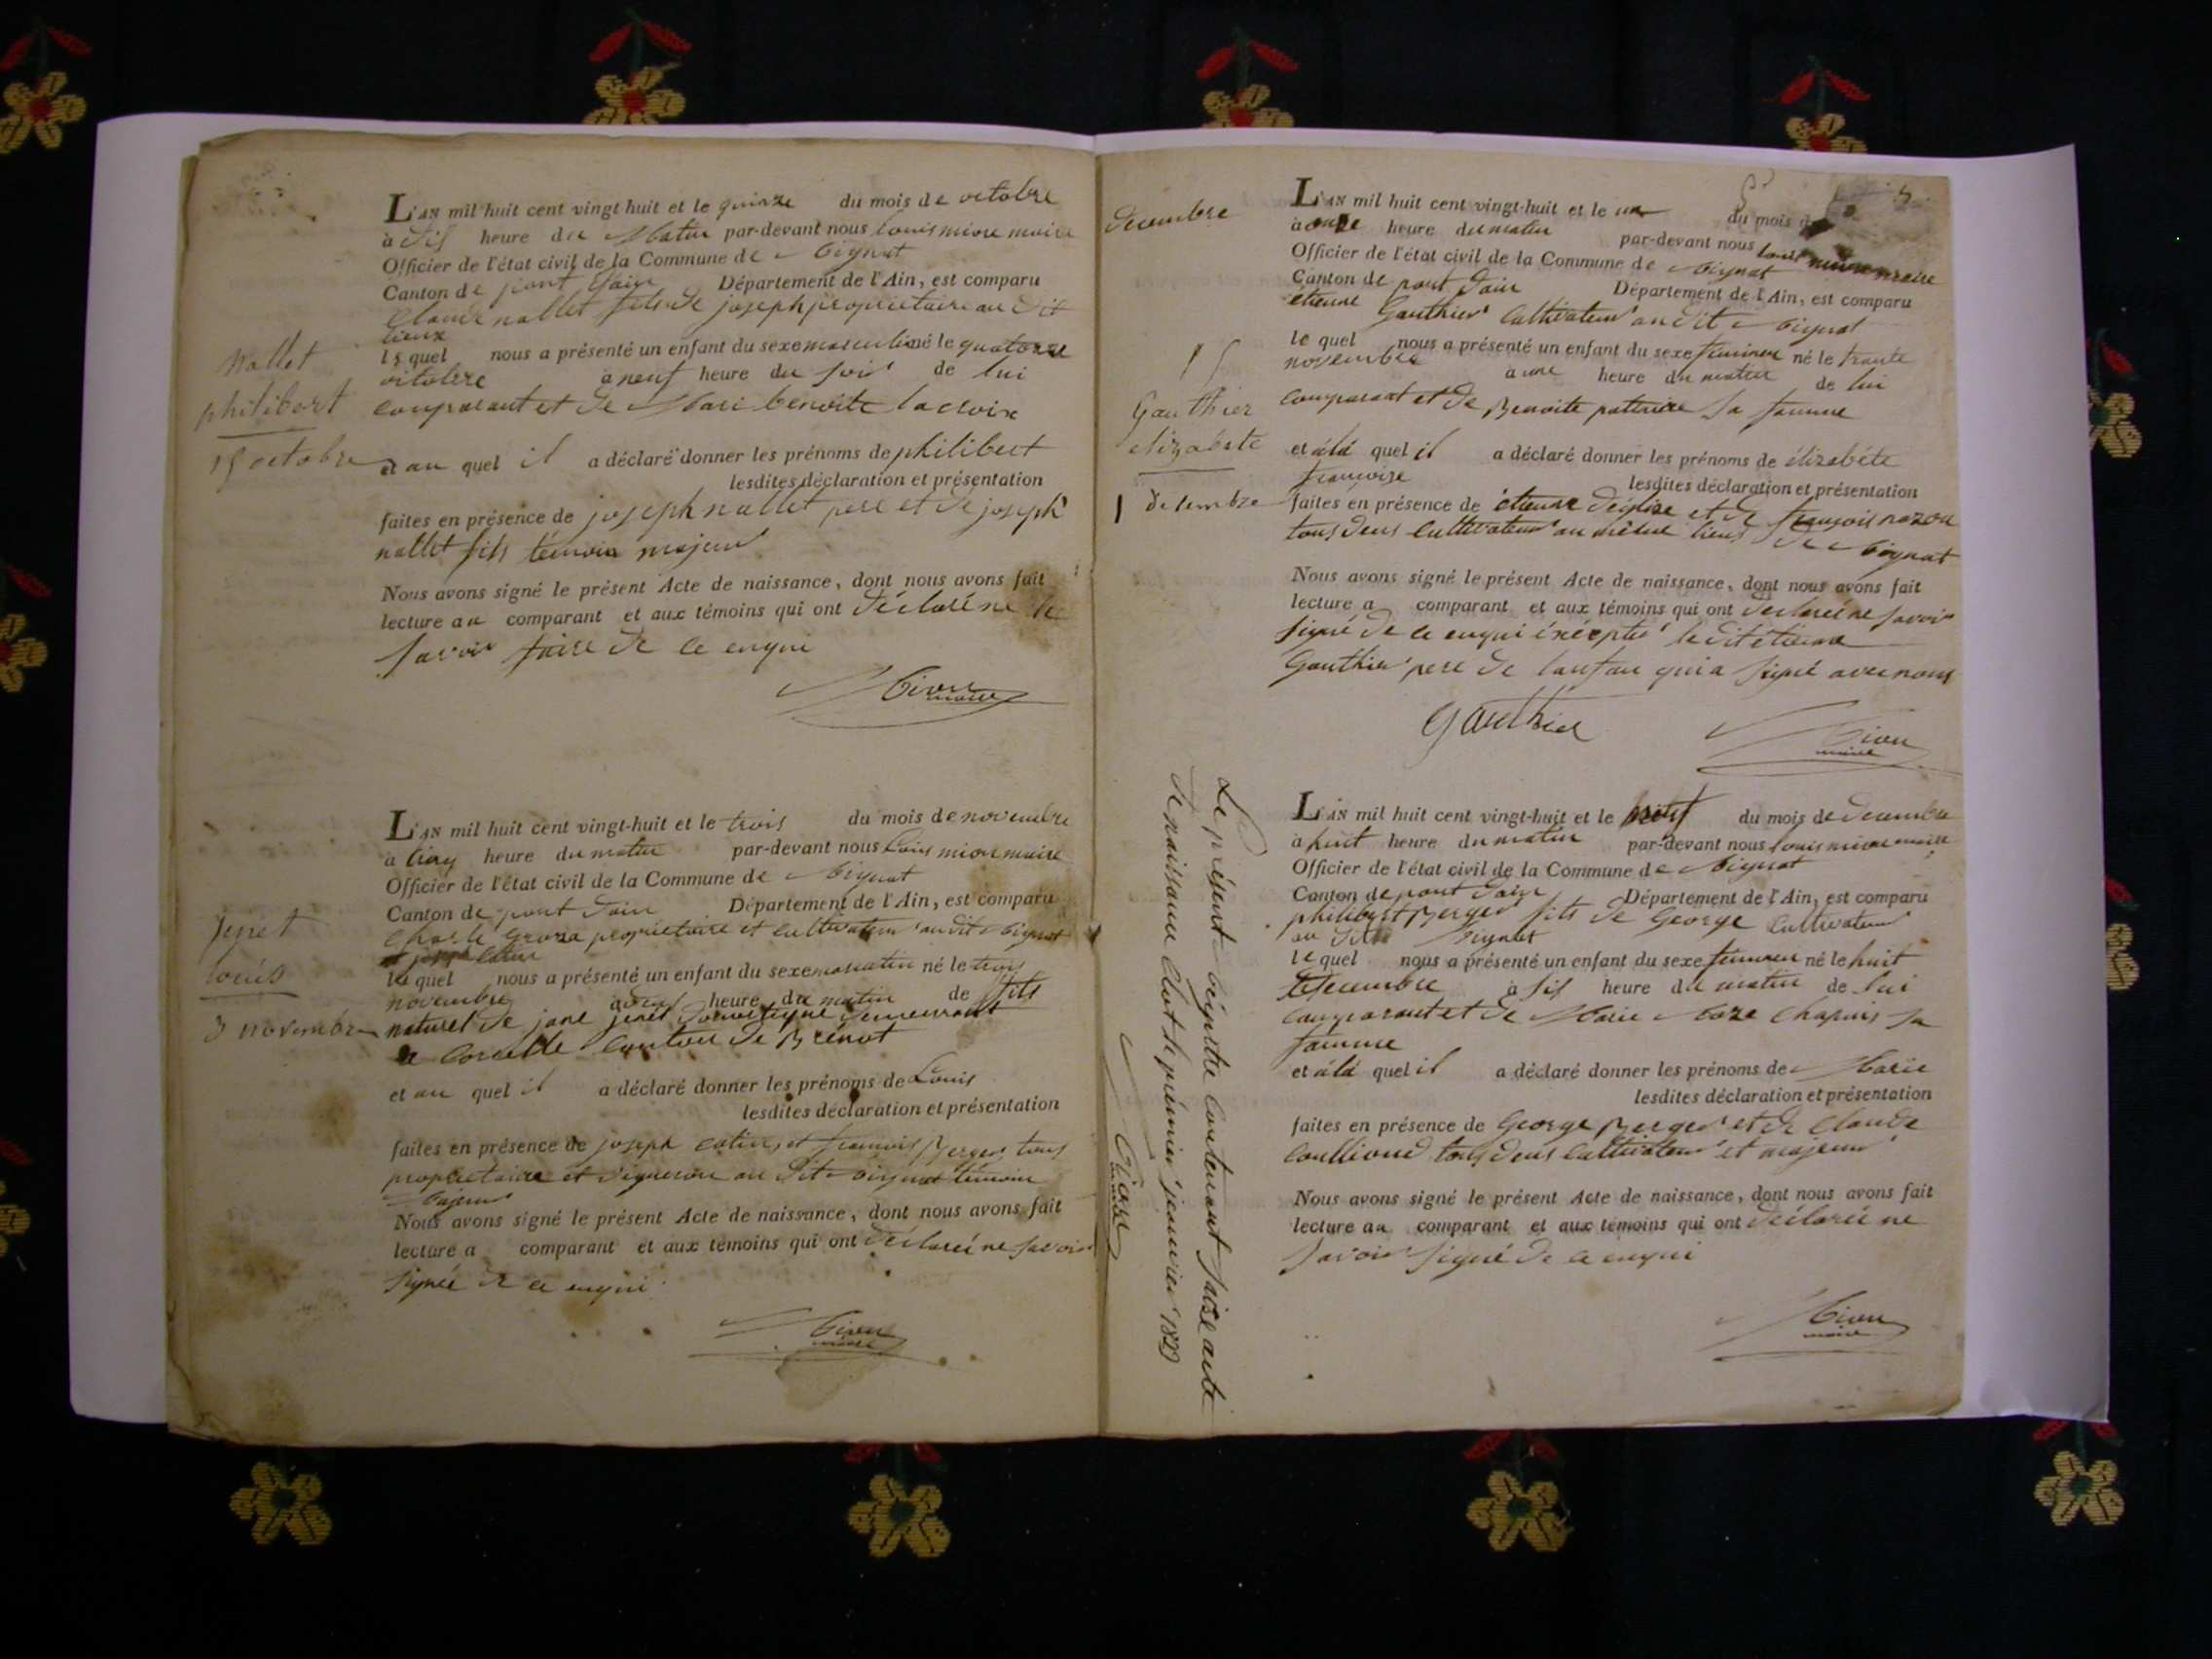 Nallet
philibert
15 octobre
L'AN mil huit cent vingt-huit et le quinze du mois de octobre
à dis heure du Matin par-devant nous Louis mion maire
Officier de l'état civil de la Commune de Mignat
Canton de pont dain Département de l'Ain, est comparu
Claude nallet fils de joseph propriétaire au dit
lieux
le quel nous a présenté un enfant du sexe masculin né le quatorze
octobre à neuf heure du soir de lui
comparant et de Mari benoite lacroix
et au quel il a déclaré donner les prénoms de philibert
lesdites déclaration et présentation
faites en présence de joseph nallet pere et de joseph
nallet fils témoin majeur
Nous avons signé le présent Acte de naissance, dont nous avons fait
lecture au comparant et aux témoins qui ont déclaré ne le
savoir faire de ce enqui
Mion
maire
jenet
louis
3 novembre
L'AN mil huit cent vingt-huit et le trois du mois de novembre
à cinq heure du matin par-devant nous Louis mion maire
Officier de l'état civil de la Commune de Mignat
Canton de pont dain Département de l'Ain, est comparu
Charle propriétaire et cultivateur au dit Mignat
le quel nous a présenté un enfant du sexe masculin né le trois
novembre à deux heure du matin de fils
naturel de jane jenet demeurant
a Corcelle Canton de Brénot
et au quel il a déclaré donner les prénoms de Louis
lesdites déclaration et présentation
faites en présence de joseph catin et francois Berger tous
propriétaire et vigneron au dit Mignat témoin
Majeur
Nous avons signé le présent Acte de naissance, dont nous avons fait
lecture a comparant et aux témoins qui ont déclareé ne savoir
signée de ce enqui
Mion
maire
decembre
15
Gauthier
elizabete
1 decembre
L'AN mil huit cent vingt-huit et le un du mois d
à onze heure du matin par-devant nous louis mion maire
Officier de l'état civil de la Commune de Mignat
Canton de pont dain Département de l'Ain, est comparu
étienne Gauthier Cultivateur au dit Mignat
le quel nous a présenté un enfant du sexe feminen né le trante
novembre à une heure du matin de lui
comparant et de Benoite sa famme
et à la quel il a déclaré donner les prénoms de élizabéte
françoise lesdites déclaration et présentation
faites en présence de étienne et de françois
tous deus cultivateur au même lieus de Mignat
Nous avons signé le présent Acte de naissance, dont nous avons fait
lecture a comparant et aux témoins qui ont déclareé ne savoir
signé de ce enqui éxcepté le dit étienne
Gauthier pere de lanfan qui a signé avec nous
Gauthier
Mion
maire
L'AN mil huit cent vingt-huit et le neuf du mois de decembre
à huit heure du matin par-devant nous louis mion maire
Officier de l'état civil de la Commune de Mignat
Canton de pont dain Département de l'Ain, est comparu
philibert Berger fils de George Cultivateur
au dit Mignat
le quel nous a présenté un enfant du sexe feminen né le huit
decembre à sis heure du matin de lui
comparant et de Marie Chapuis sa
famme
et à la quel il a déclaré donner les prénoms de Marie
lesdites déclaration et présentation
faites en présence de George Berger et de Claude
tous deus cultivateur et majeur
Nous avons signé le présent Acte de naissance, dont nous avons fait
lecture au comparant et aux témoins qui ont déclareé ne
savoir signé de ce enqui
Mion
maire
Le présent régistre Contenant saize acte
de naissance Clot le prémier jeanvier 1829
Mion
maire